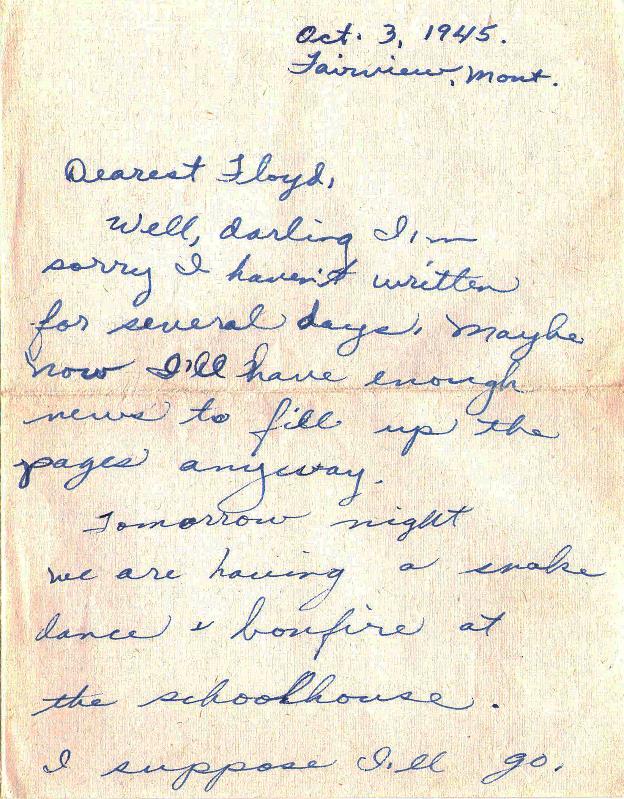 Oct. 3, 1945.
Fairview, Mont.
Dearest Floyd,
Well, darling I'm
sorry I haven't written
for several days. Maybe
now I'll have enough
news to fill up the
pages anyway.
Tomorrow night
we are having a snake
dance & bonfire at
the schoolhouse.
I suppose I'll go.